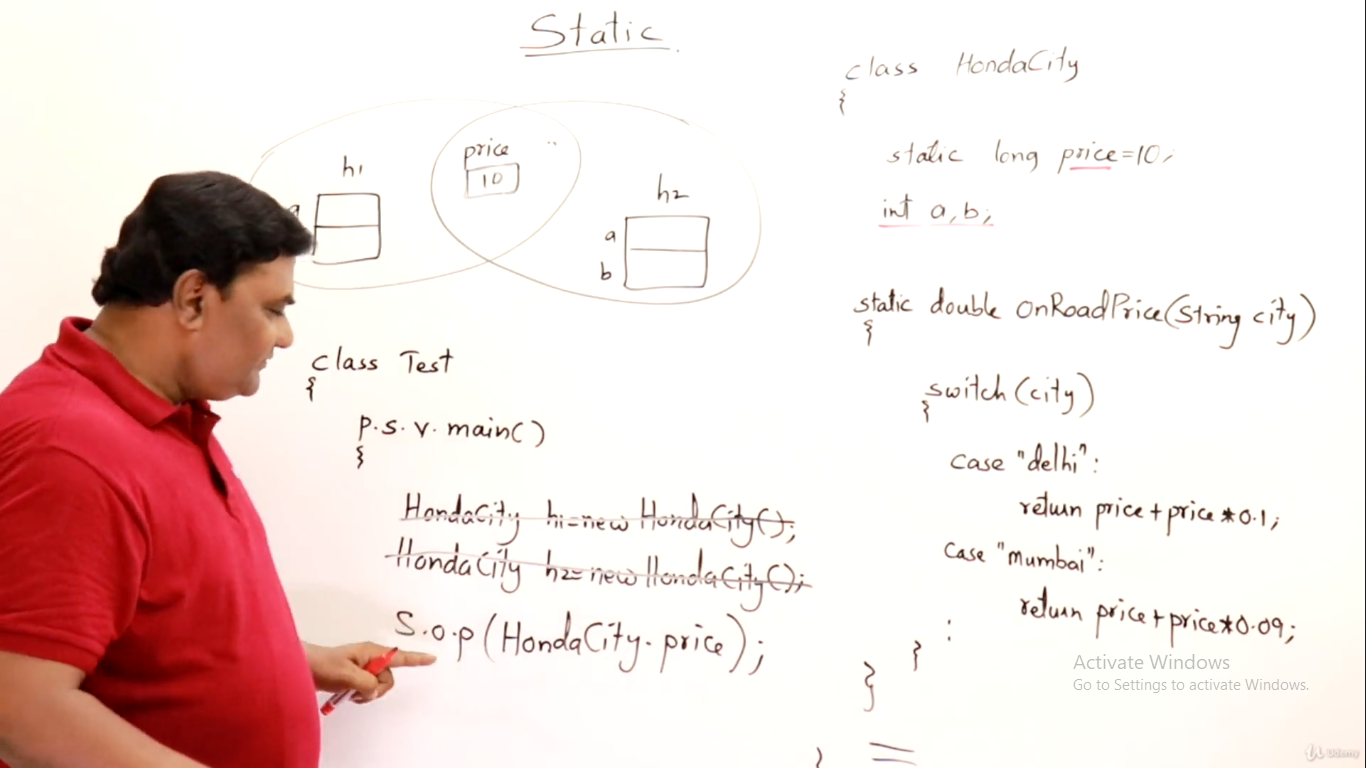 Static
h1
price
10
h2
a
a
b
class Test
{
p.s.v.main()
{
HondaCity h1=new HondaCity();
HondaCity h2=new HondaCity();
S.o.p(HondaCity.price);
class HondaCity
{
static long price=10;
int a,b;
static double onRoadPrice(String city)
{
switch(city)
{
case "delhi":
return price+price*0.1;
case "mumbai":
return price+price*0.09;
:
}
}
}
Activate Windows
Go to Settings to activate Windows.
Udemy